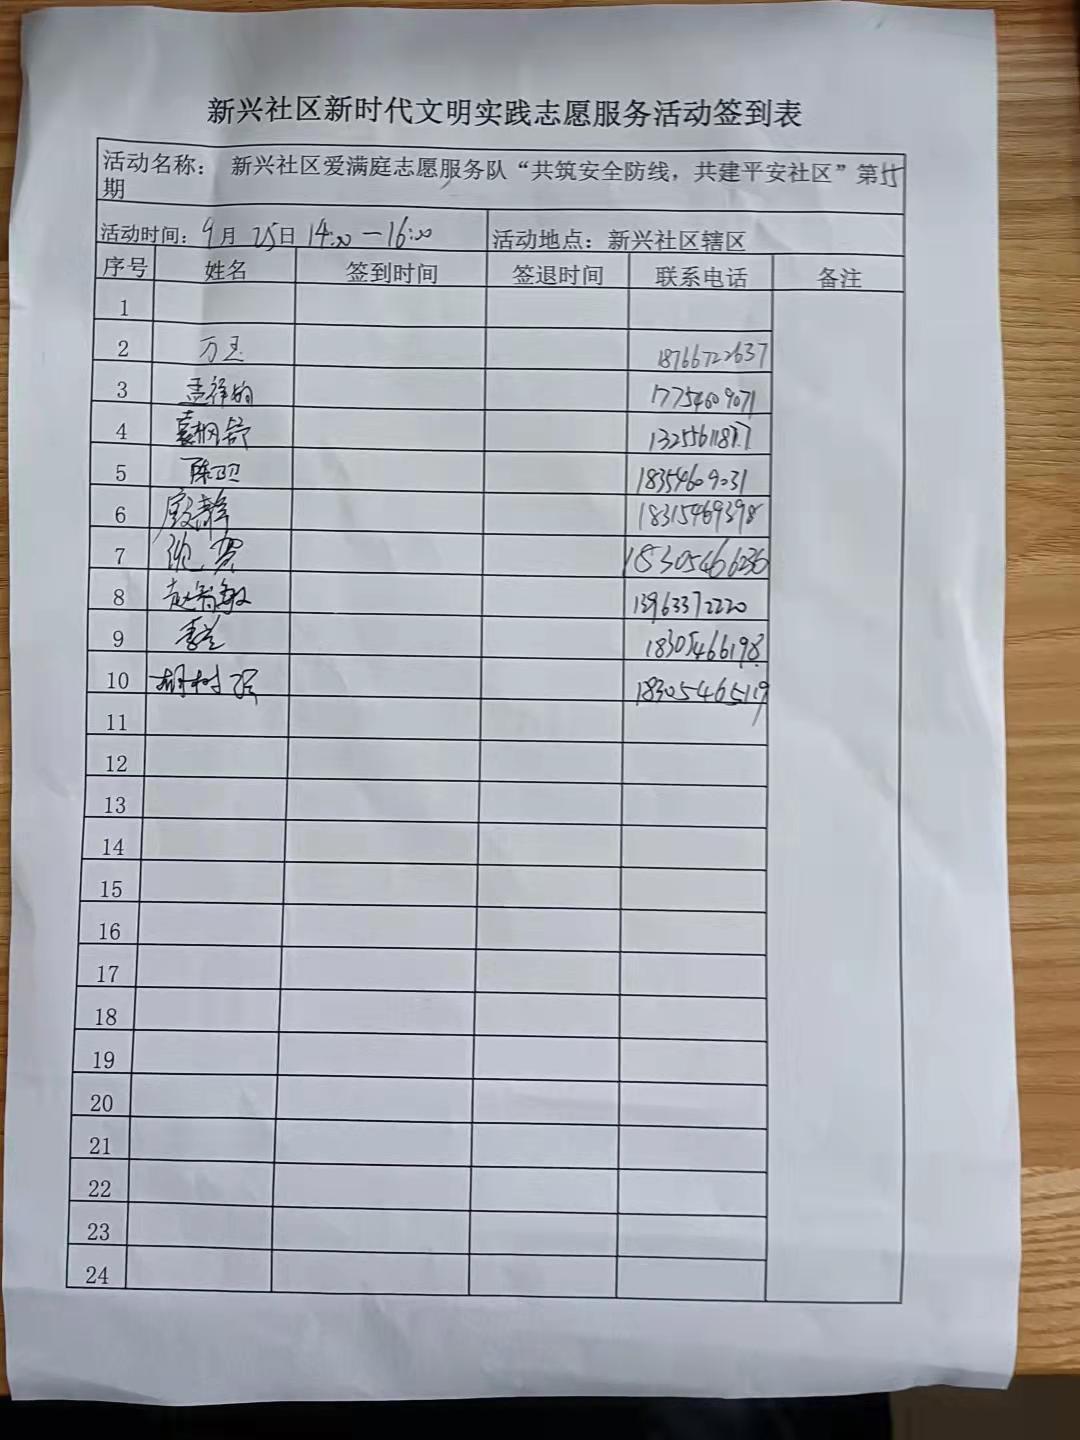 新兴社区新时代文明实践志愿服务活动签到表
活动名称： 新兴社区爱满庭志愿服务队“共筑安全防线，共建平安社区”第15
期
活动时间：9月 25日 14:00－16:00 活动地点：新兴社区辖区
序号 姓名 签到时间 签退时间 联系电话 备注
1
2 万玉 18766722637
3 孟祥 17754609071
4 袁枫舒
5 陈卫 18354609031
6 殷静 18315469398
7 18305466236
8 赵智敏 13963372220
9 李兰 18305466198
10 胡树 18305465119
11
12
13
14
15
16
17
18
19
20
21
22
23
24